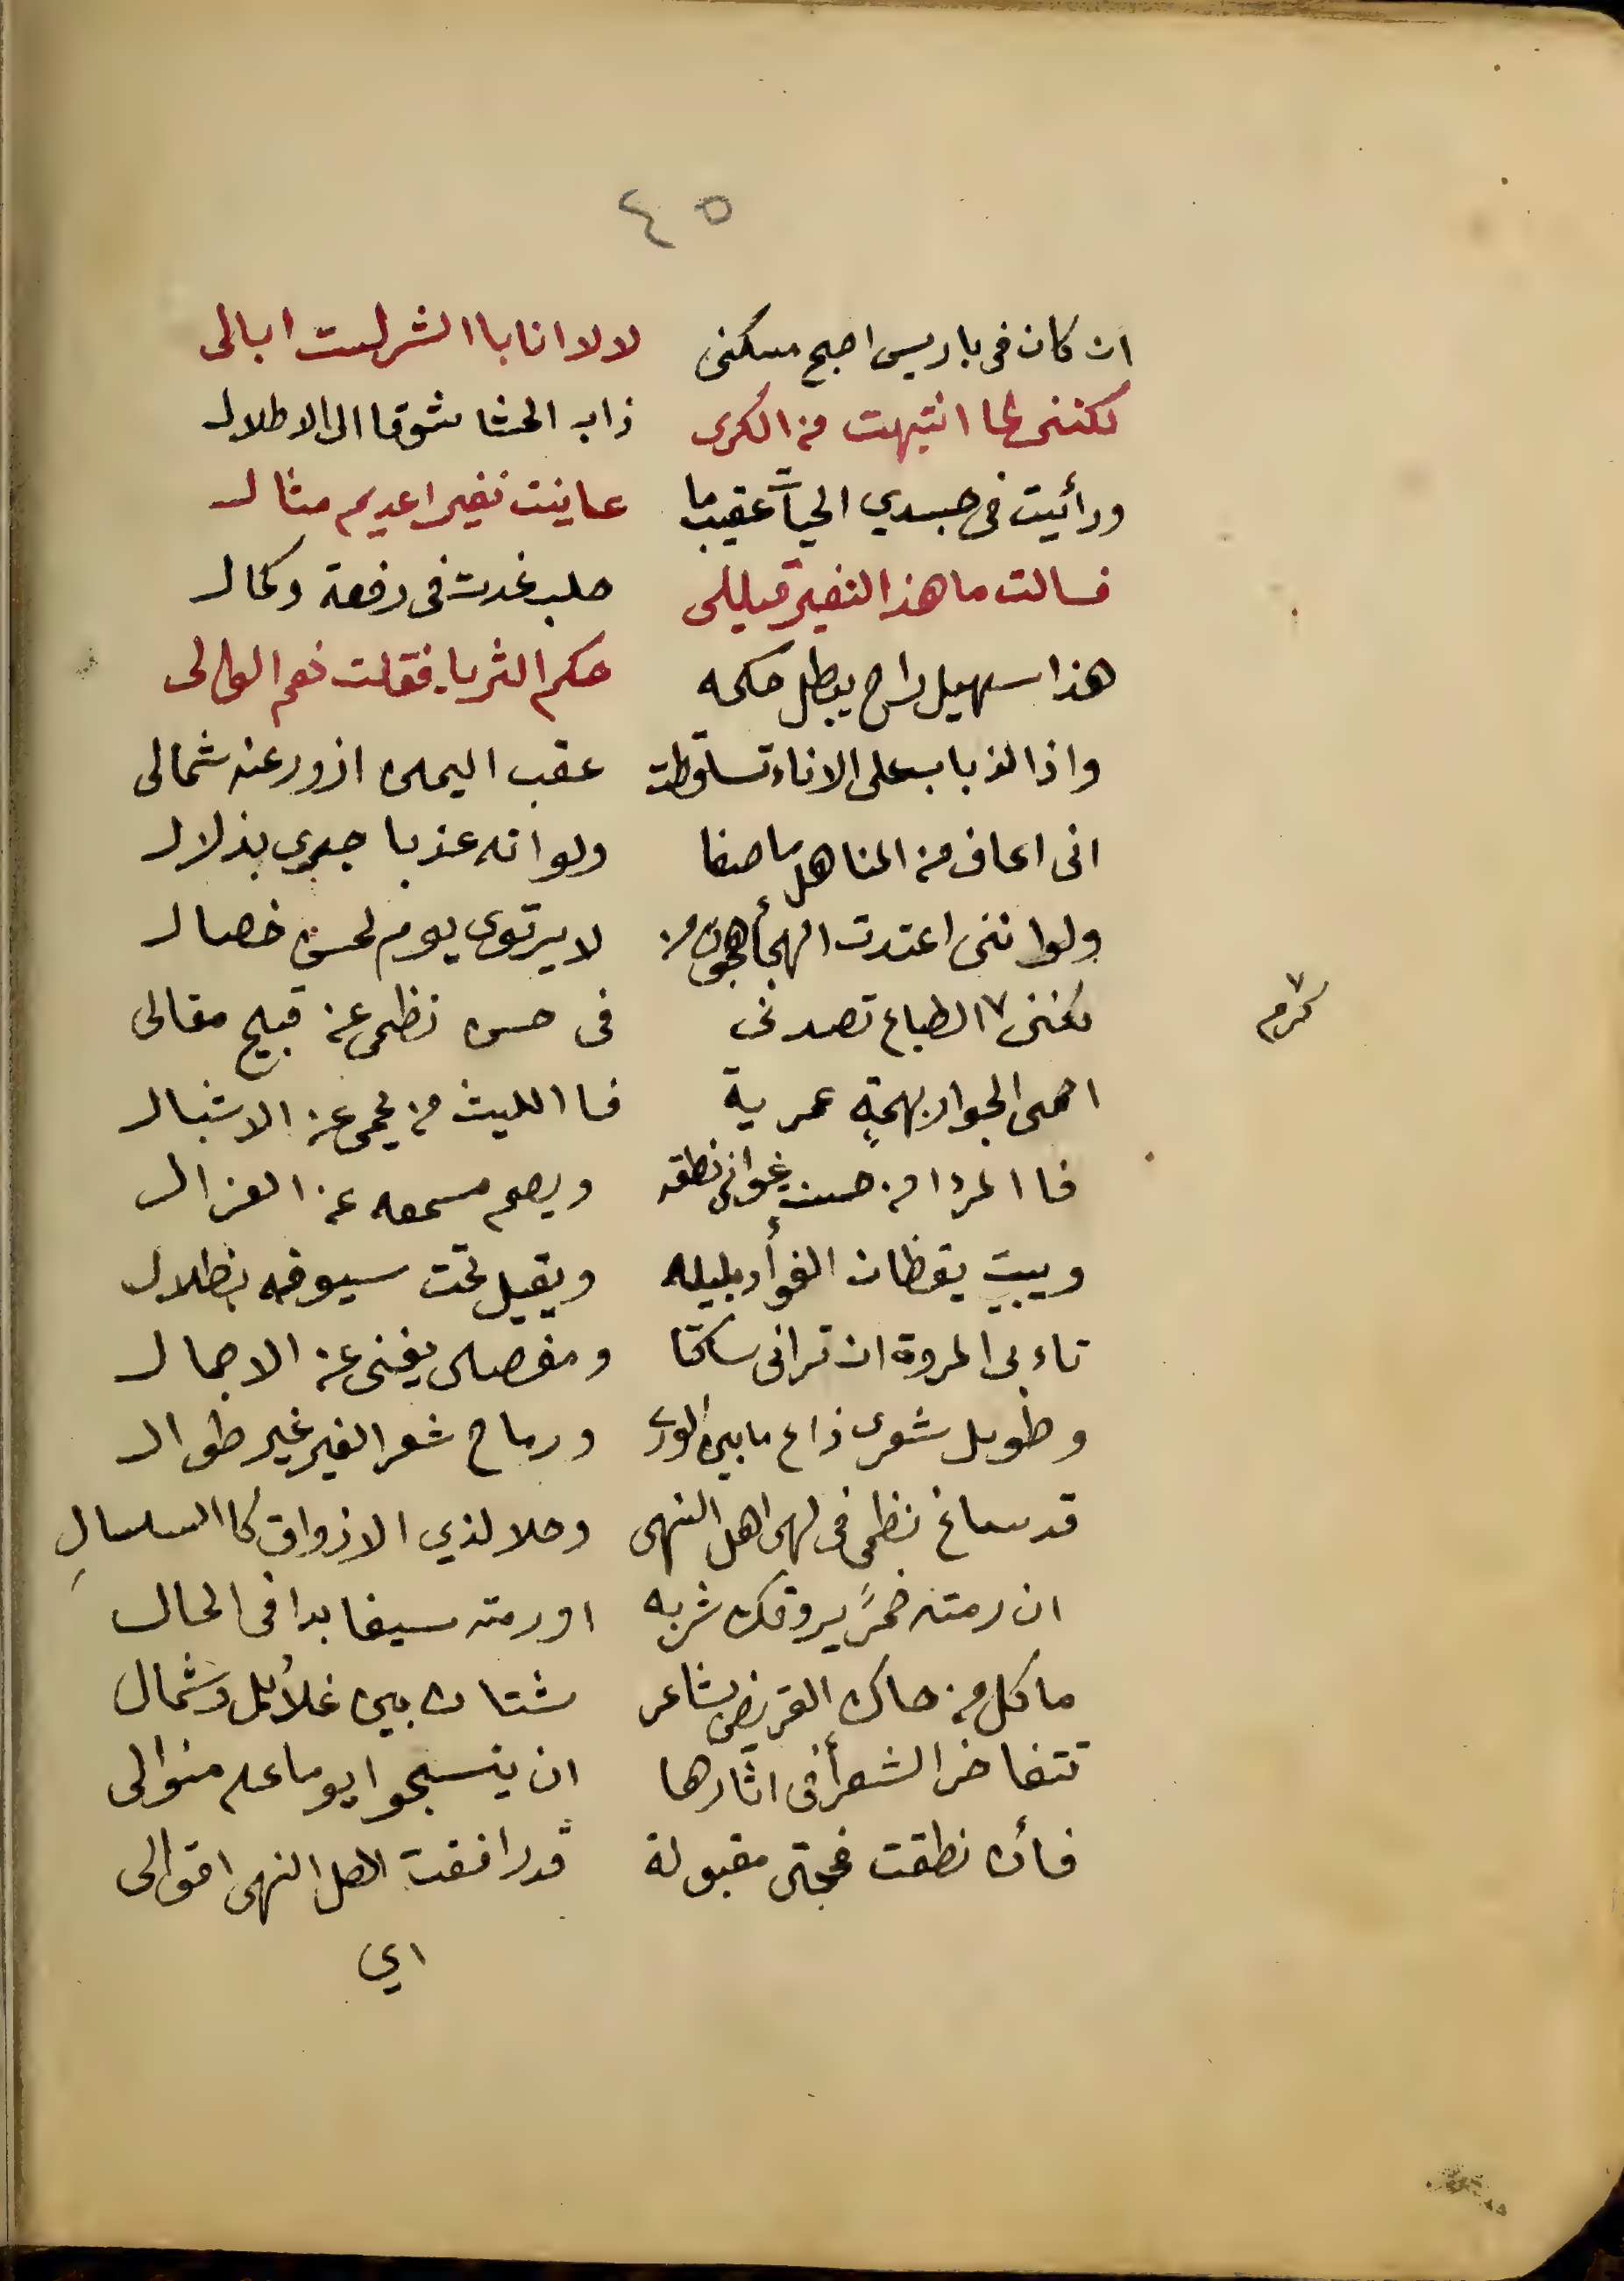 ٤٥
ان كان فى باريس اصبح مسكنى لالا انا باالشر لست ابالى
لكننى لما انتبهت من الكرى ذاب الحشا شوقا الى الاطلال
ورأيت فى جسدي الحياة عقيب ما عاينت نفيرا عديم مثال
فسالت ما هذا النفير قيل لى حلب غدت فى رفعة وكمال
هذا سهيل راح يبطل حكمه حكم الثريا فقلت نعم الوالى
واذا لذباب على الاناء تساقطت عقب اليمين ازور عنه شمالى
انى اعاف من المناهل ما صفا ولو انه عذبا جرى بزلال
ولو اننى اعتدت الهجأ هجوت من لا يرتوى يوم لحسن خصال
لكننى ٧ الطباع تصدنى فى حسن نظمى عن قبيح مقالى
٧ كرم
احمى الجوار بهمةٍ عمرية فاالليث من يحمى عن الاشبال
فاالمرء من حسنت غوانى نطقه ويصم مسمعه عن العزال
ويبيت يقظان الفوأد بليله ويقيل تحت سيوفه بظلال
تاءبى المروة ان ترانى ساكتا ومفصلى يغنى عن الاجمال
وطويل شعرى ذاع ما بين الورى ورماح شعر الغير غير طوال
قد ساغ نظمى فى لهى اهل النهى وحلا لذي الازواق كاالسلسالِ
ان رمته خمرً يروقك شربه او رمته سيفا بدا فى الحال
ما كل من حاك القريض بشاعر شتان بين غلأئل وشمال
تتفاخر الشعرأ فى اثارها ان ينسجوا يوما على منوالى
فأن نطقت فحجتى مقبولة قد رافقت اهل النهى اقوالى
اي